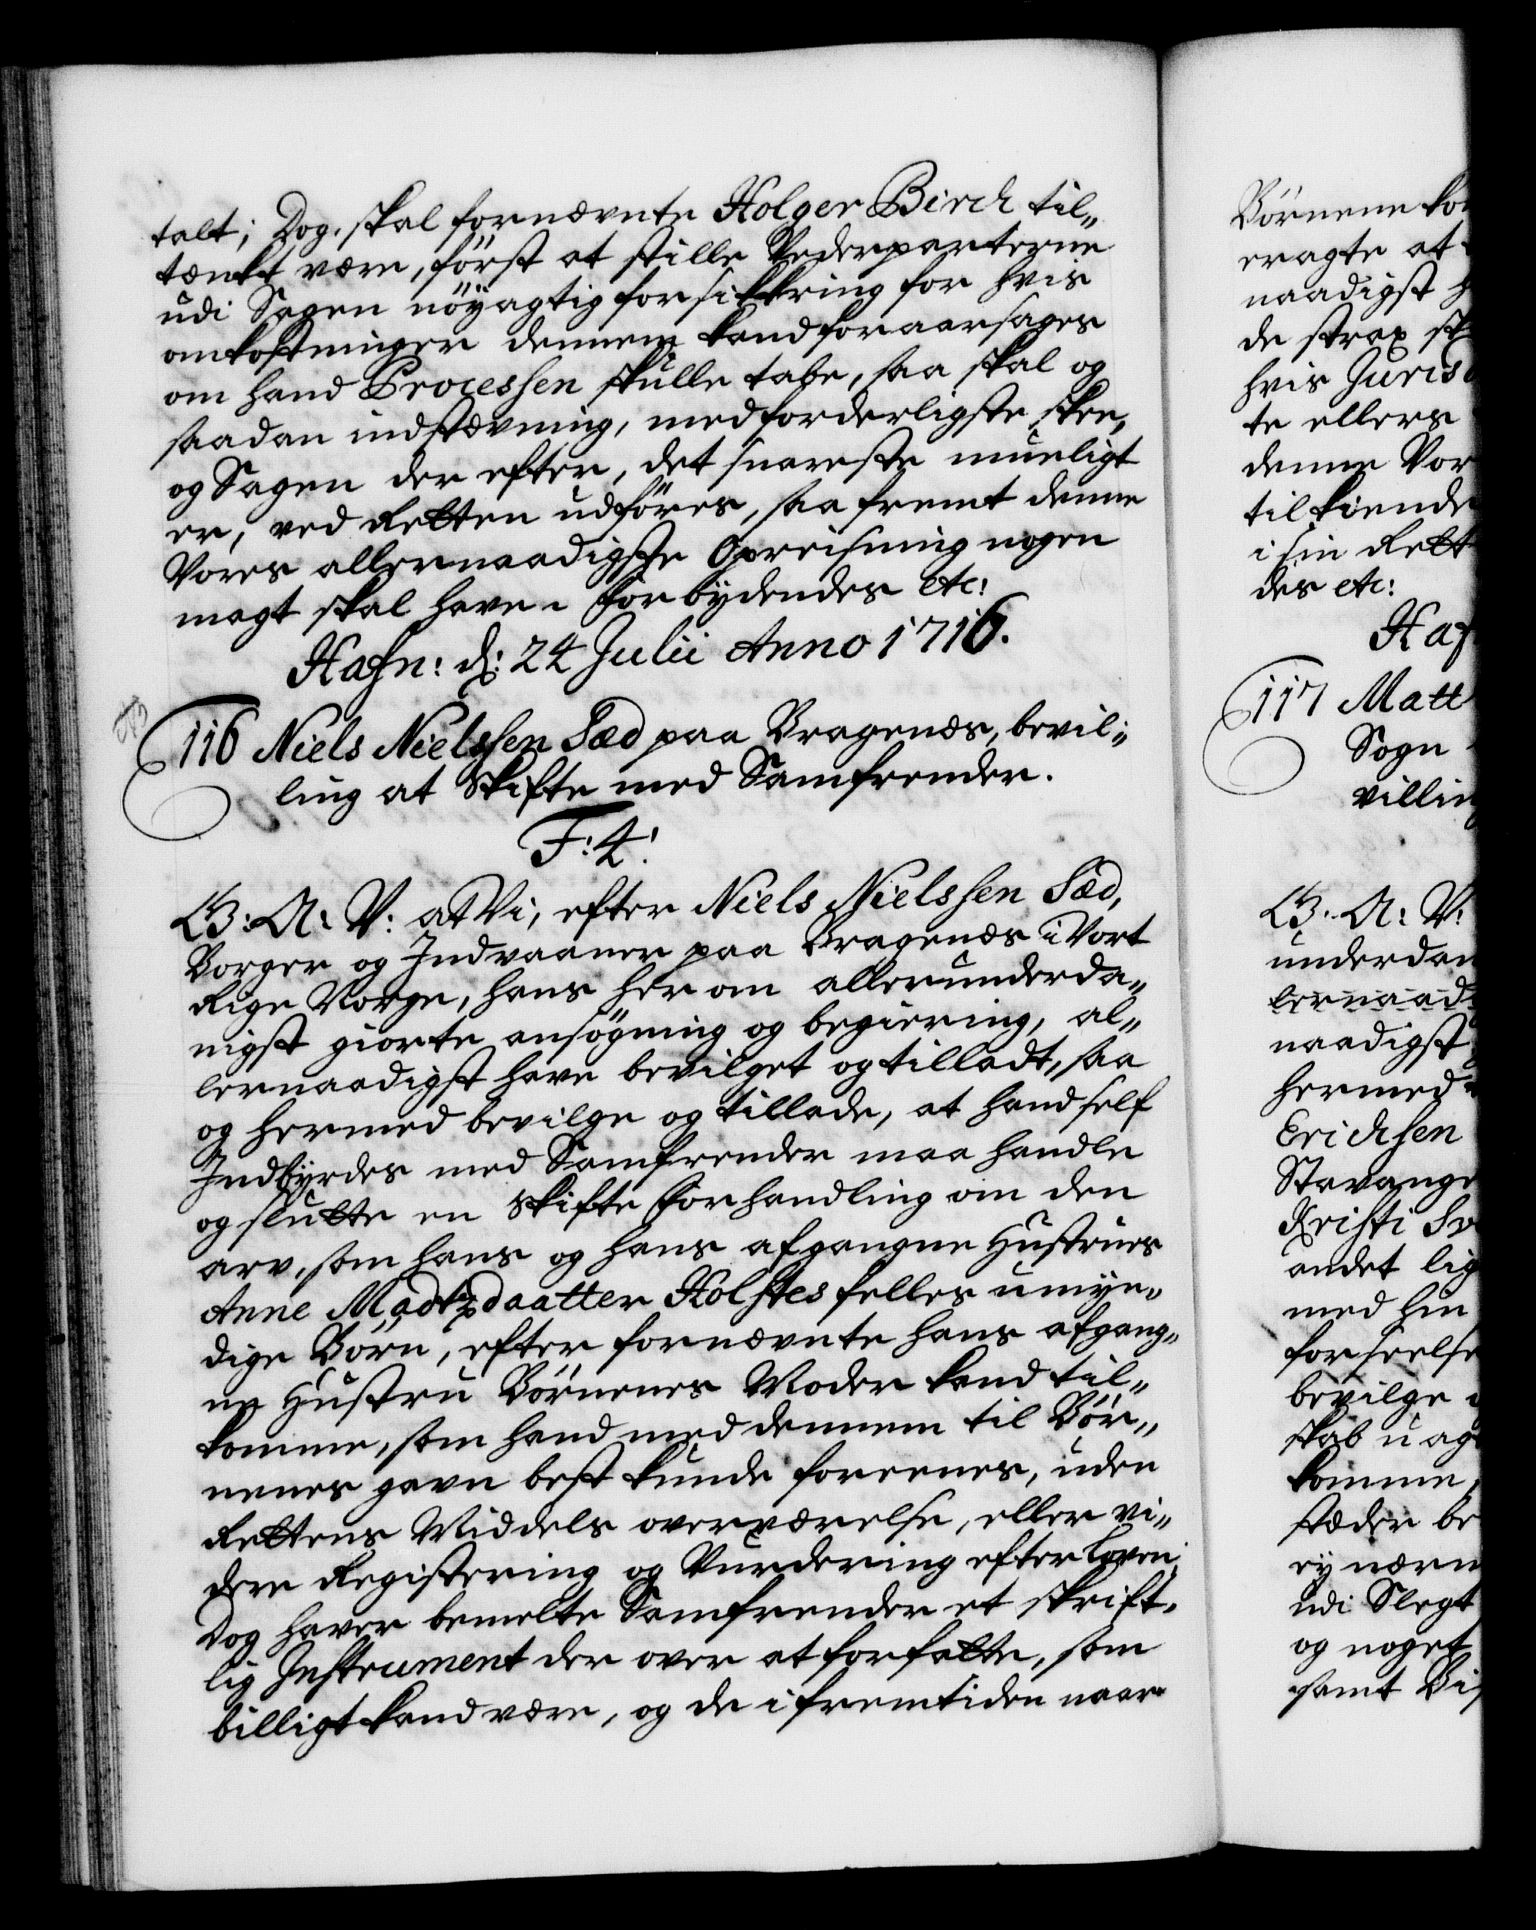 talt; Dog. skal fornævnte Holger Birch til„
tænkt være, först at stille Vederparterne
udi Sagen nöyagtig forsikkring for hvis
omkostninger dennem kand foraarsages
om hand Processen skulle tabe, saa skal og
saadan indstævning, medforderligste skee,
og Sagen der efter, det snareste mueligt
er, ved Retten udföres, saa fremt denne
Vores allernaadigste Opreisning nogen
magt skal have. Forbydendes etc:
Hafn: d: 24 Julii Anno 1716.
116 Niels Nielssen Sæd paa Bragenæs, bevil„
ling at Skifte med Samfrender.
F: 4:
G: A: V: at Vi, efter Niels Nielssen Sæd,
Borger og Indvaaner paa Bragenæs i Vort
Rige Norge, hans her om allerunderda„
nigst giorte ansögning og begiering, al„
lernaadigst have bevilget og tilladt, saa
og hermed bevilge og tillade, at hand self
Indbyrdes med Samfrender maa handle
og slutte en Skifte Forhandling om den
arv, som hans og hans afgangne Hustrues
Anne Madtzdaatter Holstes felles umyn„
dige Börn, efter fornævnte hans afgang„
ne Hustru Börnenes Moder kand til„
komme, som hand med dennem til Bör„
nenes gavn best kunde foreenes, uden
Rettens Middels overværelse, eller vi„
dere Registering og Vurdering efter loven;
Dog haver bemelte Samfrender et skrift„
lig Instrument der over at forfatte, som
billigt kand være, og de i fremtiden naar
Börnene
eragte at
naadigst
de strax
hvis Juris
te ellers
denne Vor
tilkiende
i sin Rett
des etc:
Haf
117 Matt
Sogn
villin
G: A: V:
underdan
lernaad
naadigst
hermed
Erichsen
Stavange
Kristi
andet lig
med hin
forseelse
bevilge
skab uag
komme
stæder be
ey nærm
udi Slegt
og noget
samt Bi